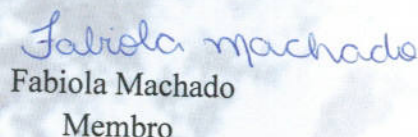 Fabiola machado
Fabiola Machado
Membro